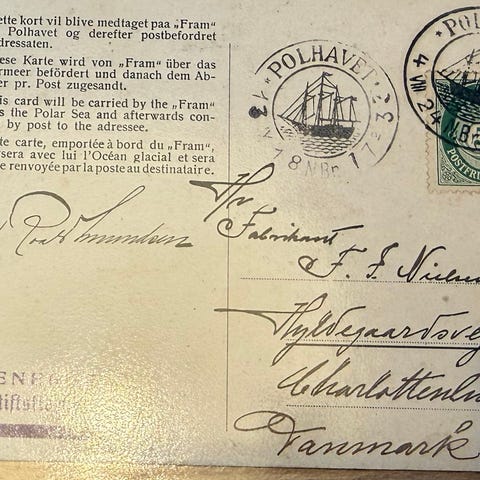 ette kort vil blive medtaget paa „Fram“
Polhavet og derefter postbefordret
dressaten.
ese Karte wird von „Fram“ über das
rmeer befördert und danach dem Ab-
er pr. Post zugesandt.
is card will be carried by the „Fram“
s the Polar Sea and afterwards con-
by post to the adressee.
te carte, emportée à bord du „Fram“,
sera avec lui l'Océan glacial et sera
e renvoyée par la poste au destinataire.
POLHAVET
78 N.Br.
PO
4 VIII 24
N.B
POSTFRI
Hr
Fabrikant
F. F. Nielse
Hyldegaardsve
Charlottenlu
Danmark
ENE